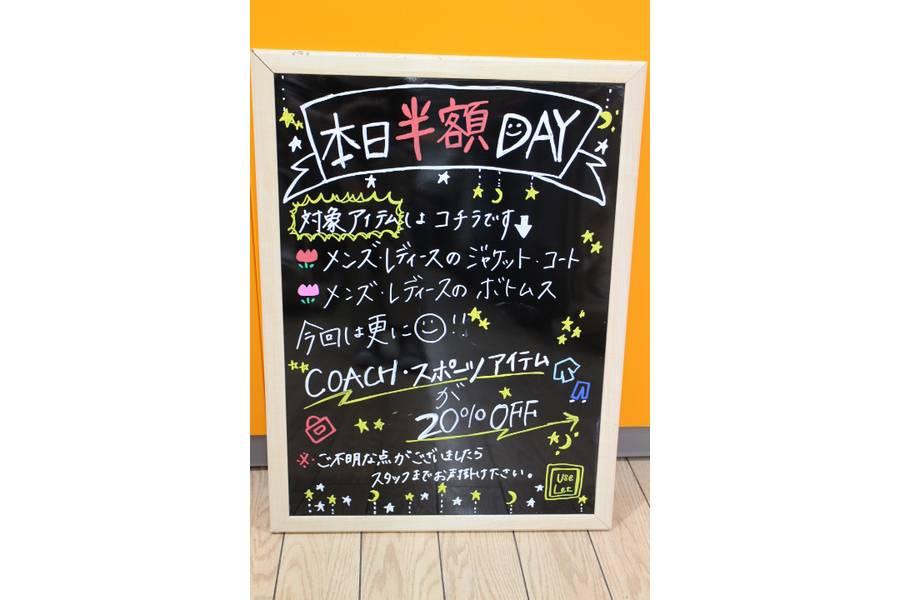 本日半額DAY
対象アイテムはコチラです⬇
メンズ・レディースのジャケット・コート
メンズ・レディースのボトムス
今回は更に☺!!
COACH・スポーツアイテム
が
20%OFF
※ご不明な点がございましたら
スタッフまでお声掛け下さい。
Use
Let